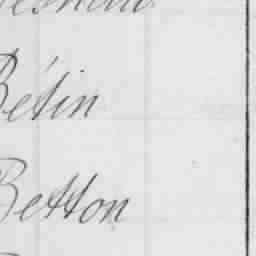 Bétin
Betton